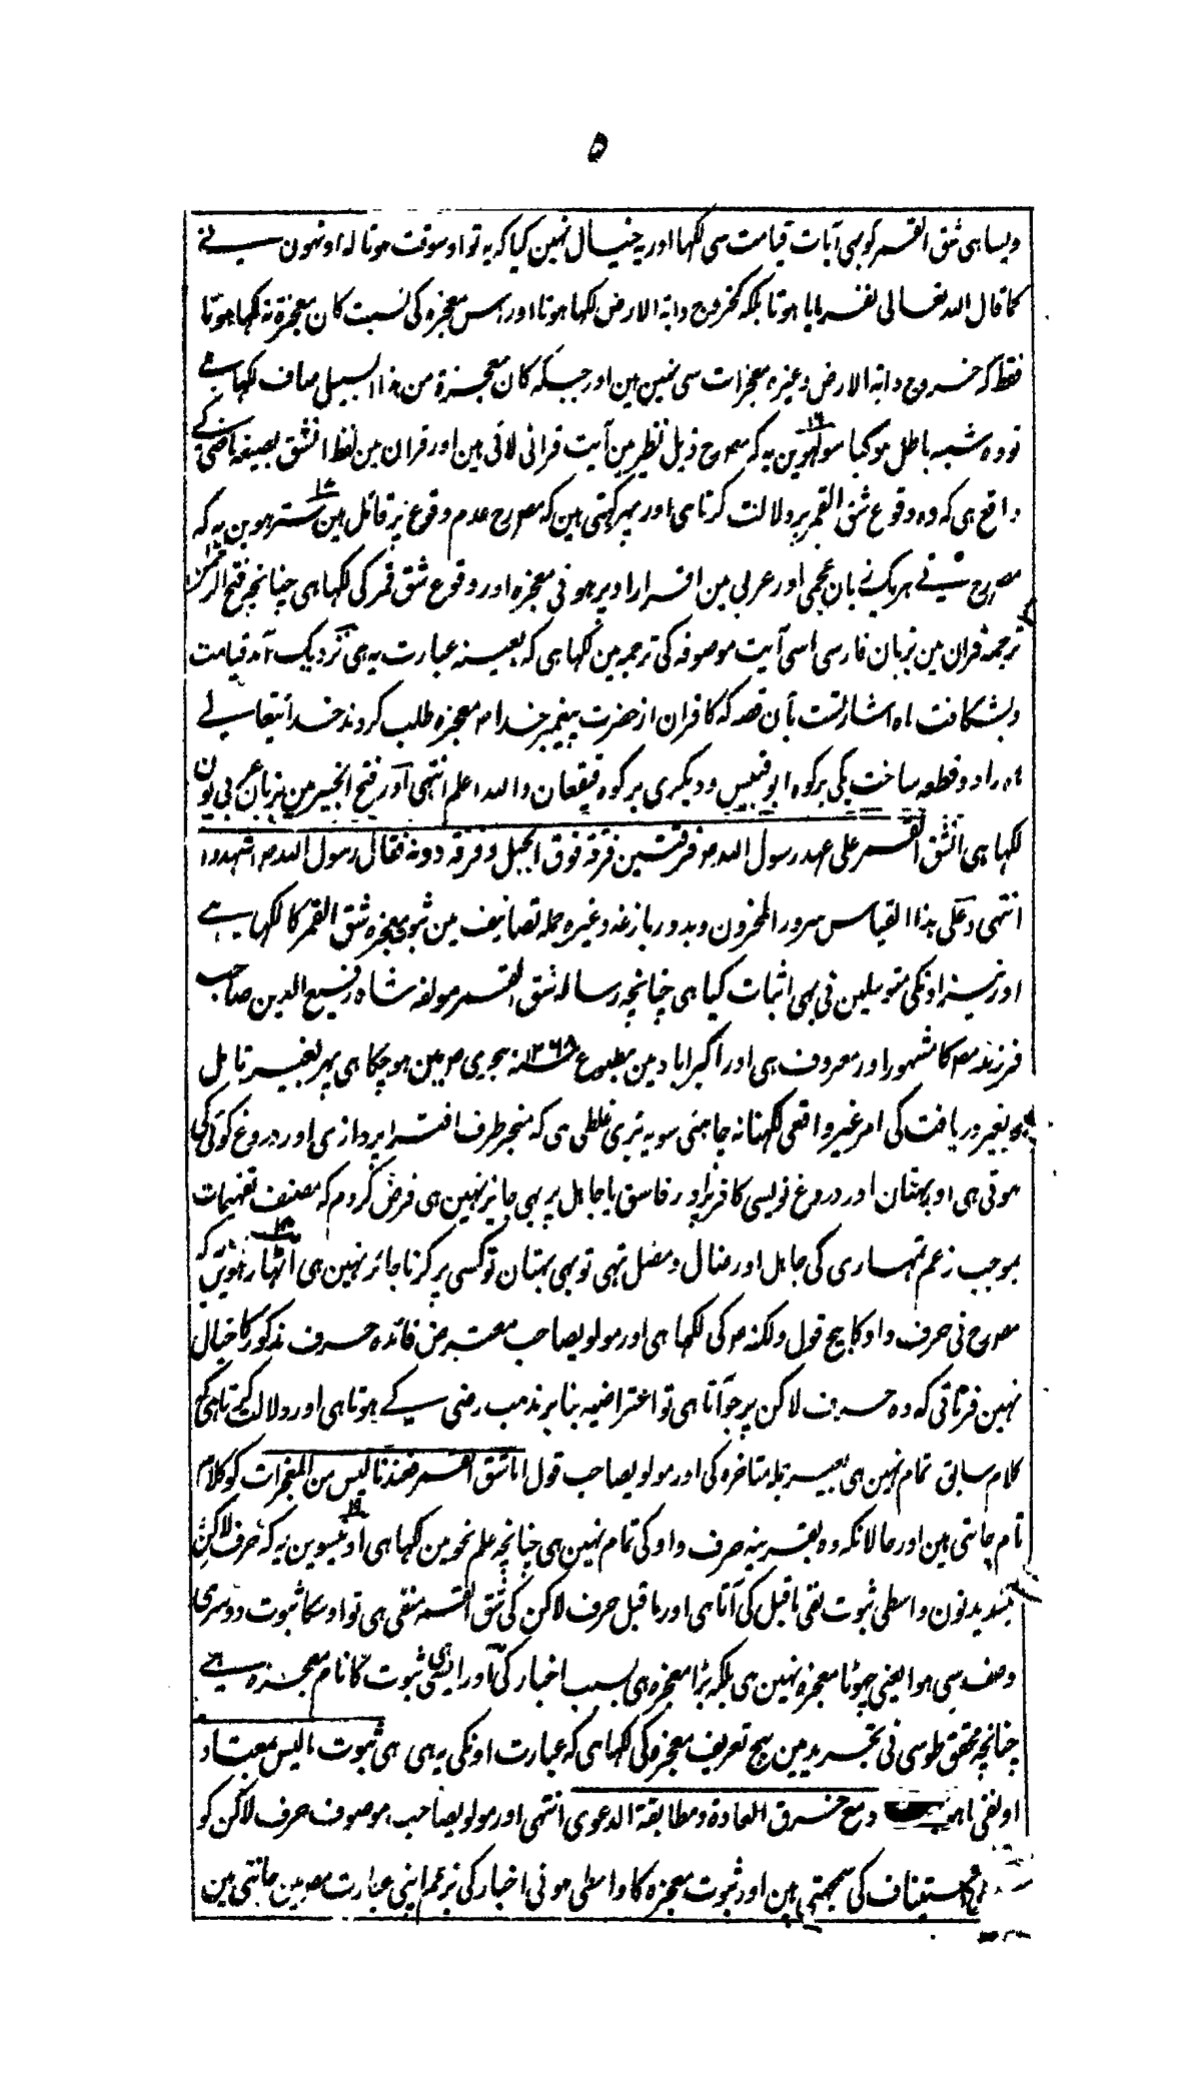 ۵
ویسا ہی شق القمر کو بہی آیات قیامت سی لکہا اور یہ خیال نہین کیا کہ یہ تو اوسوقت ہوتا کہ اونہون نے
کما قال اللہ تعالی نفرمایا ہوتا بلکہ کخروج دابۃ الارض لکہا ہوتا اور اس معجزہ کی نسبت کان معجزۃ نہ کہا ہوتا
فقط کہ خروج دابۃ الارض وغیرہ معجزات سی نہین ہین اور جبکہ کان معجزۃ من ہذا السبیل صاف لکہا ہے
تو وہ شبہہ باطل ہو گیا سولہوین یہ کہ ممدوح ذیل نظیر مین آیت قرانی لائی ہین اور قران مین لفظ انشق بصیغہ ماضی کے
واقع ہی کہ وہ وقوع شق القمر پر دلالت کرتا ہی اور پہر کہتی ہین کہ ممدوح عدم وقوع پر قائل ہین سترہوین یہ کہ
ممدوح نے ہر یک زبان عجمی اور عربی مین اقرار اوپر ہونی معجزہ اور وقوع شق قمر کی لکہا ہی چنانچہ فتح الرحمن
ترجمہ قران مین بزبان فارسی اسی آیت موصوفہ کی ترجمہ مین لکہا ہی کہ بعینہ عبارت یہ ہی نزدیک آمد قیامت
و بشگافت ماہ اشارتست بآن قصہ کہ کافران از حضرت پیغمبر خدا صہ معجزہ طلب کردند خدایتعالے
ماہ را دو قطعہ ساخت یکی برکوہ ابو قبیس و دیگری برکوہ قیقعان واللہ اعلم انتہی اور فتح الخبیر مین بزبان عربی یون
لکہا ہی انشق القمر علی عہد رسول اللہ صہ فرقتین فرقۃ فوق الجبل وفرقۃ دونہ فقال رسول اللہ صہ اشہدوا
انتہی وعلی ہذا القیاس سرور المحزون و بدور بازغہ وغیرہ جملہ تصانیف مین ثبوت معجزہ شق القمر کا لکہا ہے
اور نیز اونکی متوسلین نی بہی اثبات کیا ہی چنانچہ رسالہ شق القمر مولفہ شاہ رفیع الدین صاحب
فرزند ممدوح کا مشہور اور معروف ہی اور اکبراباد مین مطبوع ۱۲۶۸ہجری مین ہو چکا ہی پہر بغیر تامل
و بغیر دریافت کی امر غیر واقعی لکہنا نہ چاہئی سو یہ بڑی غلطی ہی کہ منجر طرف افترا پردازی اور دروغ گوئی کی
ہوتی ہی اور بہتان اور دروغ نویسی کافر اور فاسق یا جاہل پر بہی جایز نہین ہی فرض کردم کہ مصنف تفہیمات
بموجب زعم تمہاری کی جاہل اور ضال و مضل تہی تو بہی بہتان تو کسی پر کرنا جائز نہین ہی اٹہارہوین یہ کہ
ممدوح نی حرف واو کا بیچ قول ولکنہ صہ کی لکہا ہی اور مولویصاحب معترض فائدہ حرف مذکور کا خیال
نہین فرماتی کہ وہ حرف لاکن پر جو آتا ہی تو اعتراضیہ بنا بر مذہب رضی کے ہوتا ہی اور دلالت کرتا ہی کہ
کلام سابق تمام نہین ہی بغیر جملہ متاخرہ کی اور مولویصاحب قول اما شق القمر فعندنا لیس من المعجزات کو کلام
تام جانتی ہین اور حالانکہ وہ بقرینہ حرف واو کی تمام نہین ہی چنانچہ علم نحو مین لکہا ہی اونیسوین یہ کہ حرف لاکن
بتشدید نون واسطی ثبوت نفی ماقبل کی آتا ہی اور ماقبل حرف لاکن کی شق القمر منفی ہی تو اوسکا ثبوت دوسری
وصف سی ہوا یعنی چہوٹا معجزہ نہین ہی بلکہ بڑا معجزہ ہی بسبب اخبار کی اور ایسی ہی ثبوت کا نام معجزہ ہے
چنانچہ محقق طوسی نی تجرید مین بیچ تعریف معجزہ کی لکہا ہی کہ عبارت اونکی یہ ہی ہی ثبوت مالیس بمعتاد
او نفی ما ہو ومع خرق العادۃ ومطابقۃ الدعوی انتہی اور مولویصاحب موصوف حرف لاکن کو
استیناف کی سمجہتی ہین اور ثبوت معجزہ کا واسطی ہونی اخبار کی بزعم اپنی عبارت ممدوح مین جانتی ہین